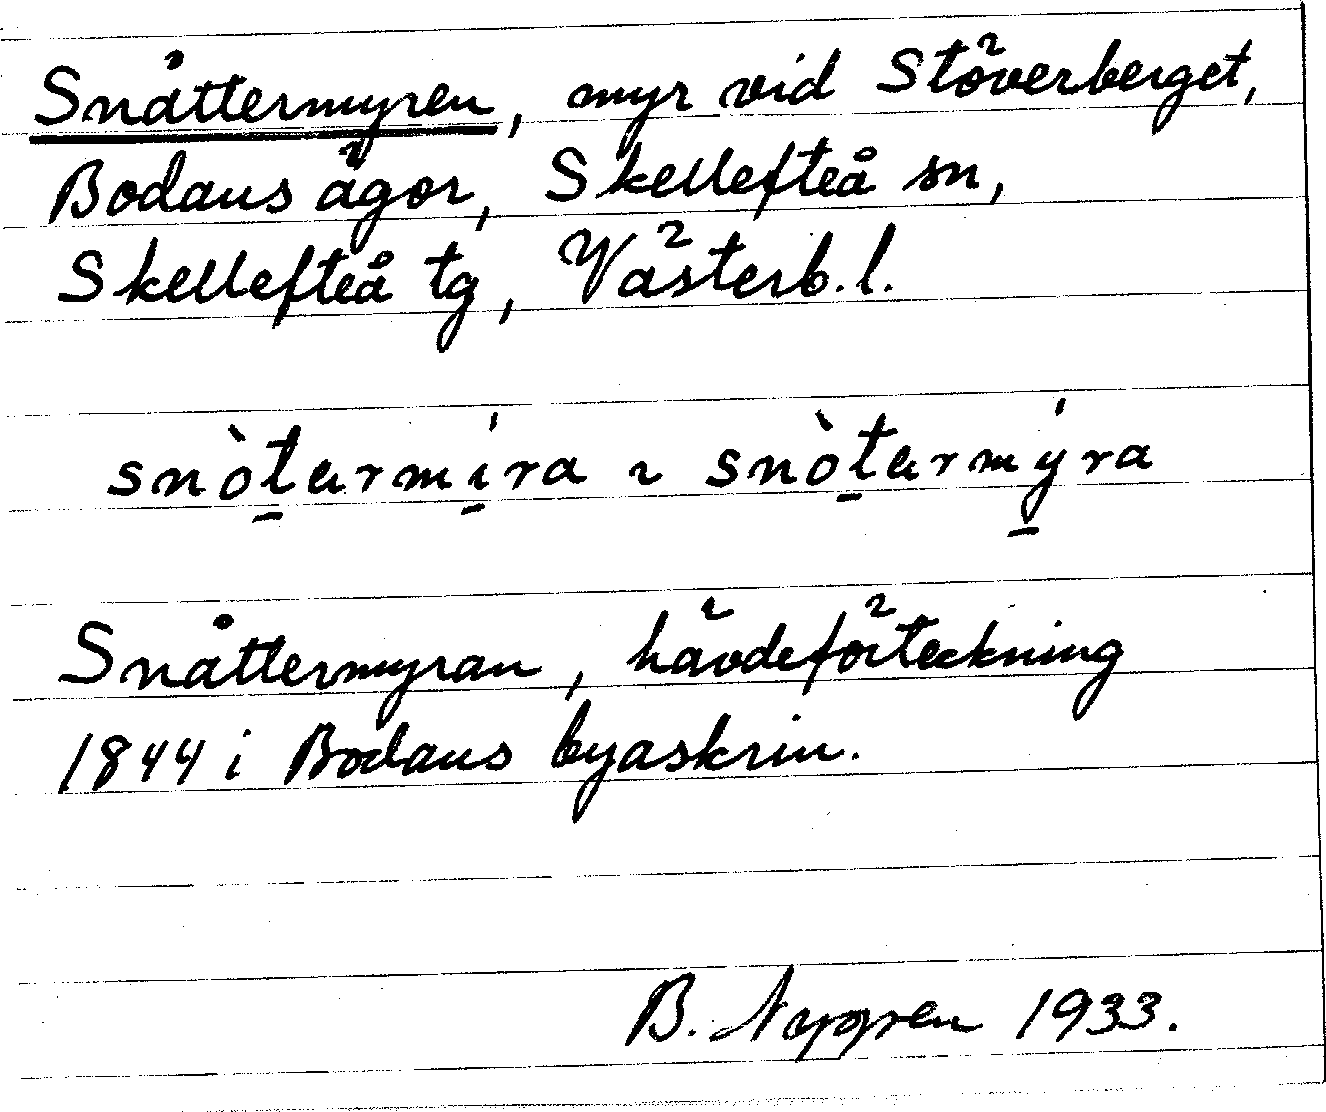 Snåttermyren, myr vid Stöverberget,
Bodans ägor, Skellefteå sn,
Skellefteå tg, Västerb. l.
snòt̠ərmí̠ra ~ snòt̠ərmý̠ra
Snåttermyran, hävdeförteckning
1844 i Bodans byaskrin.
B. Nygren 1933.